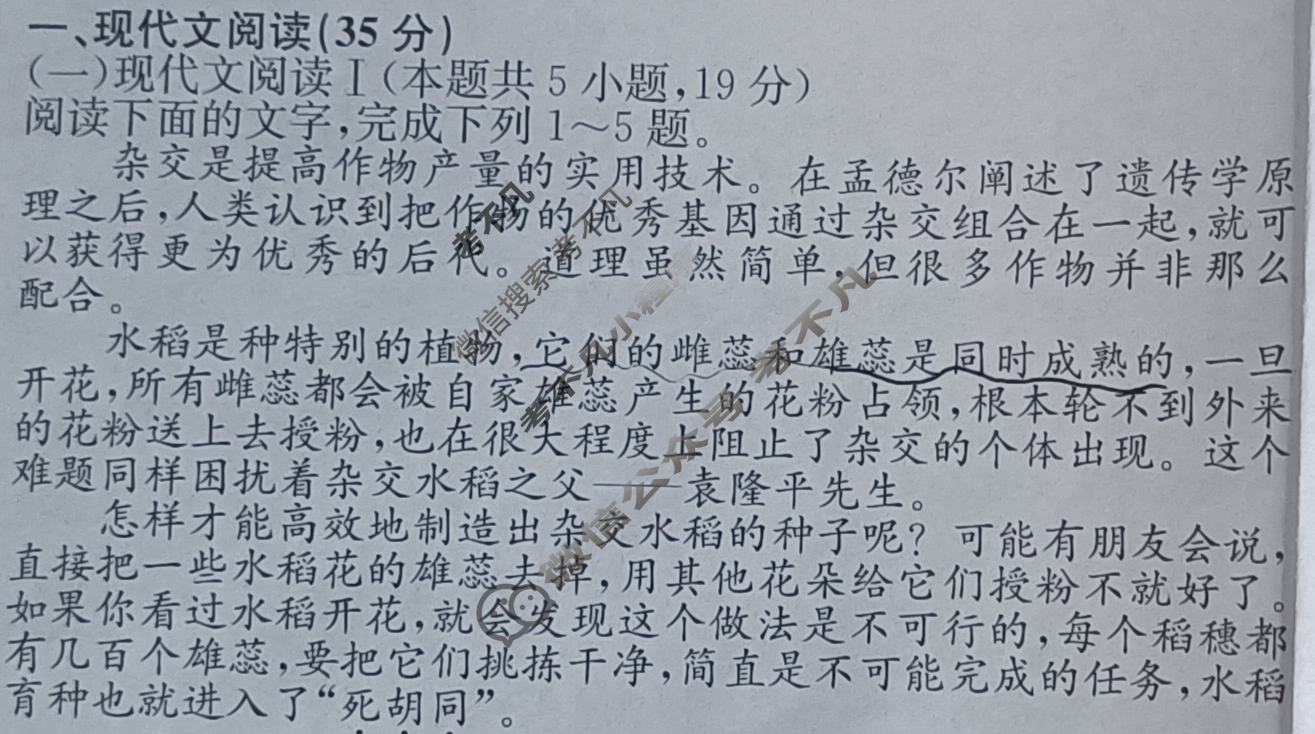 一、现代文阅读(35 分)
(一)现代文阅读Ⅰ(本题共 5 小题,19 分)
阅读下面的文字,完成下列 1～5 题。
杂交是提高作物产量的实用技术。在孟德尔阐述了遗传学原
理之后,人类认识到把作物的优秀基因通过杂交组合在一起,就可
以获得更为优秀的后代。道理虽然简单,但很多作物并非那么
配合。
水稻是种特别的植物,它们的雌蕊和雄蕊是同时成熟的,一旦
开花,所有雌蕊都会被自家雄蕊产生的花粉占领,根本轮不到外来
的花粉送上去授粉,也在很大程度上阻止了杂交的个体出现。这个
难题同样困扰着杂交水稻之父——袁隆平先生。
怎样才能高效地制造出杂交水稻的种子呢？可能有朋友会说,
直接把一些水稻花的雄蕊去掉,用其他花朵给它们授粉不就好了。
如果你看过水稻开花,就会发现这个做法是不可行的,每个稻穗都
有几百个雄蕊,要把它们挑拣干净,简直是不可能完成的任务,水稻
育种也就进入了“死胡同”。
考不凡
微信搜索考不凡
考不凡小程序
微信公众号考不凡